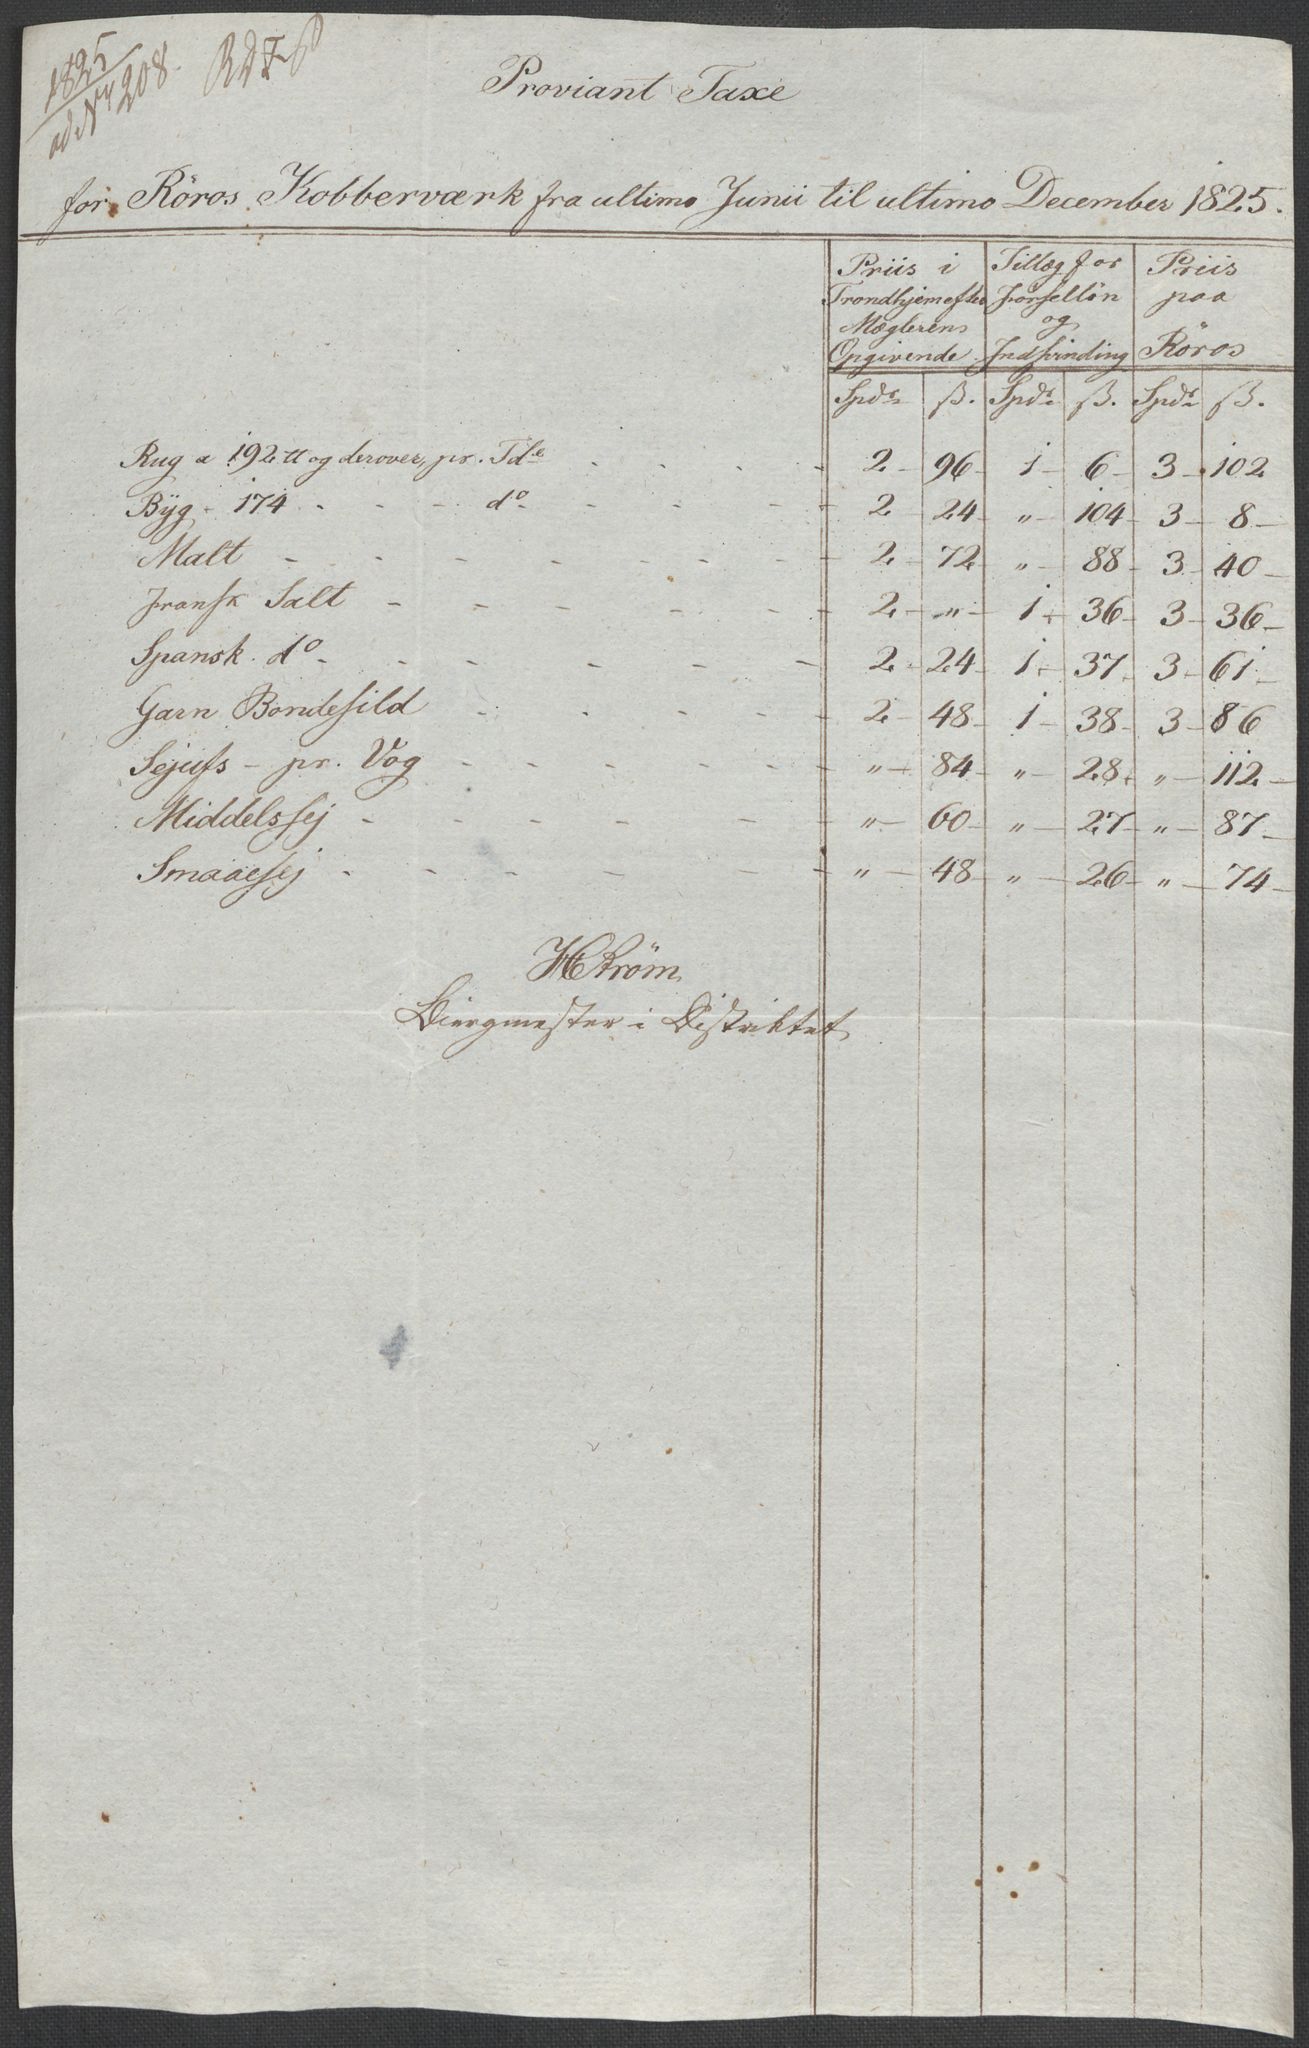 1825
ad No 4208.
Proviant Taxe
for Röros Kobberværk fra ultimo Junii til ultimo December 1825.
Priis i Trondhjem efter Mæglerens Opgivende | Tillæg for Forselløn og Indsvinding | Priis paa Röros
Spdr ß. Spdr ß. Spdr ß.
Rug a 192 ℔ og derover, pr. Tde - 2 - 96 - 1 - 6 - 3 - 102
Byg - 174 - - - do - 2 24 - " - 104 - 3 - 8 -
Malt - 2 - 72 - " - 88 - 3 - 40 -
Fransk Salt - 2 - " - 1 - 36 - 3 - 36 -
Spansk do - 2 - 24 - 1 - 37 - 3 - 61 -
Garn Bondesild - 2 - 48 - 1 - 38 - 3 - 86
Sejufs - pr. Vog - " - 84 - " - 28 - " - 112 -
Middelssej - " - 60 - " - 27 - " - 87 -
Smaaesej - " - 48 - " - 26 - " - 74 -
HStrøm
Biergmester i Distriktet